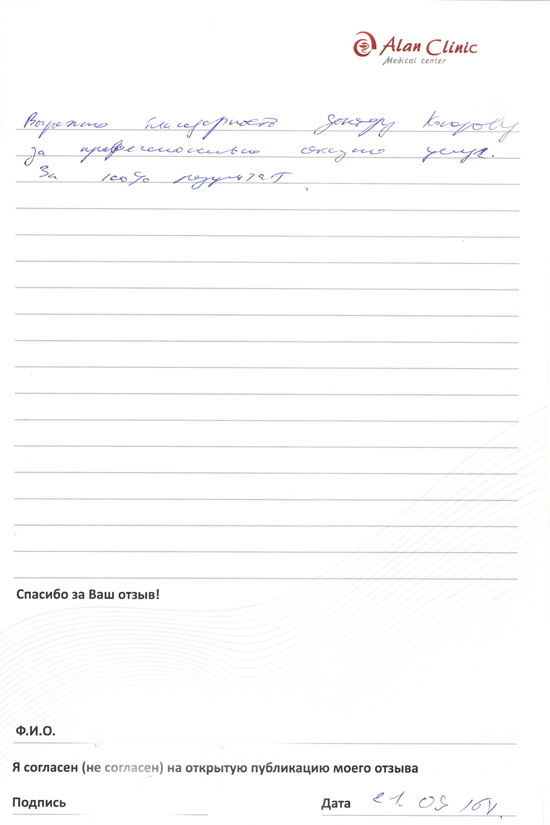 Alan Clinic
Medical center
Выражаю благодарность доктору
за профессионально оказ услуг.
За 100% результат.
Спасибо за Ваш отзыв!
Ф.И.О.
Я согласен (не согласен) на открытую публикацию моего отзыва
Подпись Дата 21.09 16г.